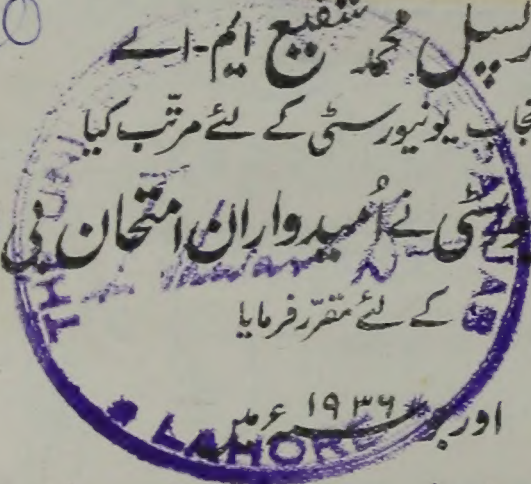 پل محمد شفیع ایم-اے
جاب یونیورسٹی کے لئے مرتب کیا
سٹی نے اُمیدواران امتحان بی
کے لئے مقرر فرمایا
اور جو ۱۹۳۶ء میں
LAHORE